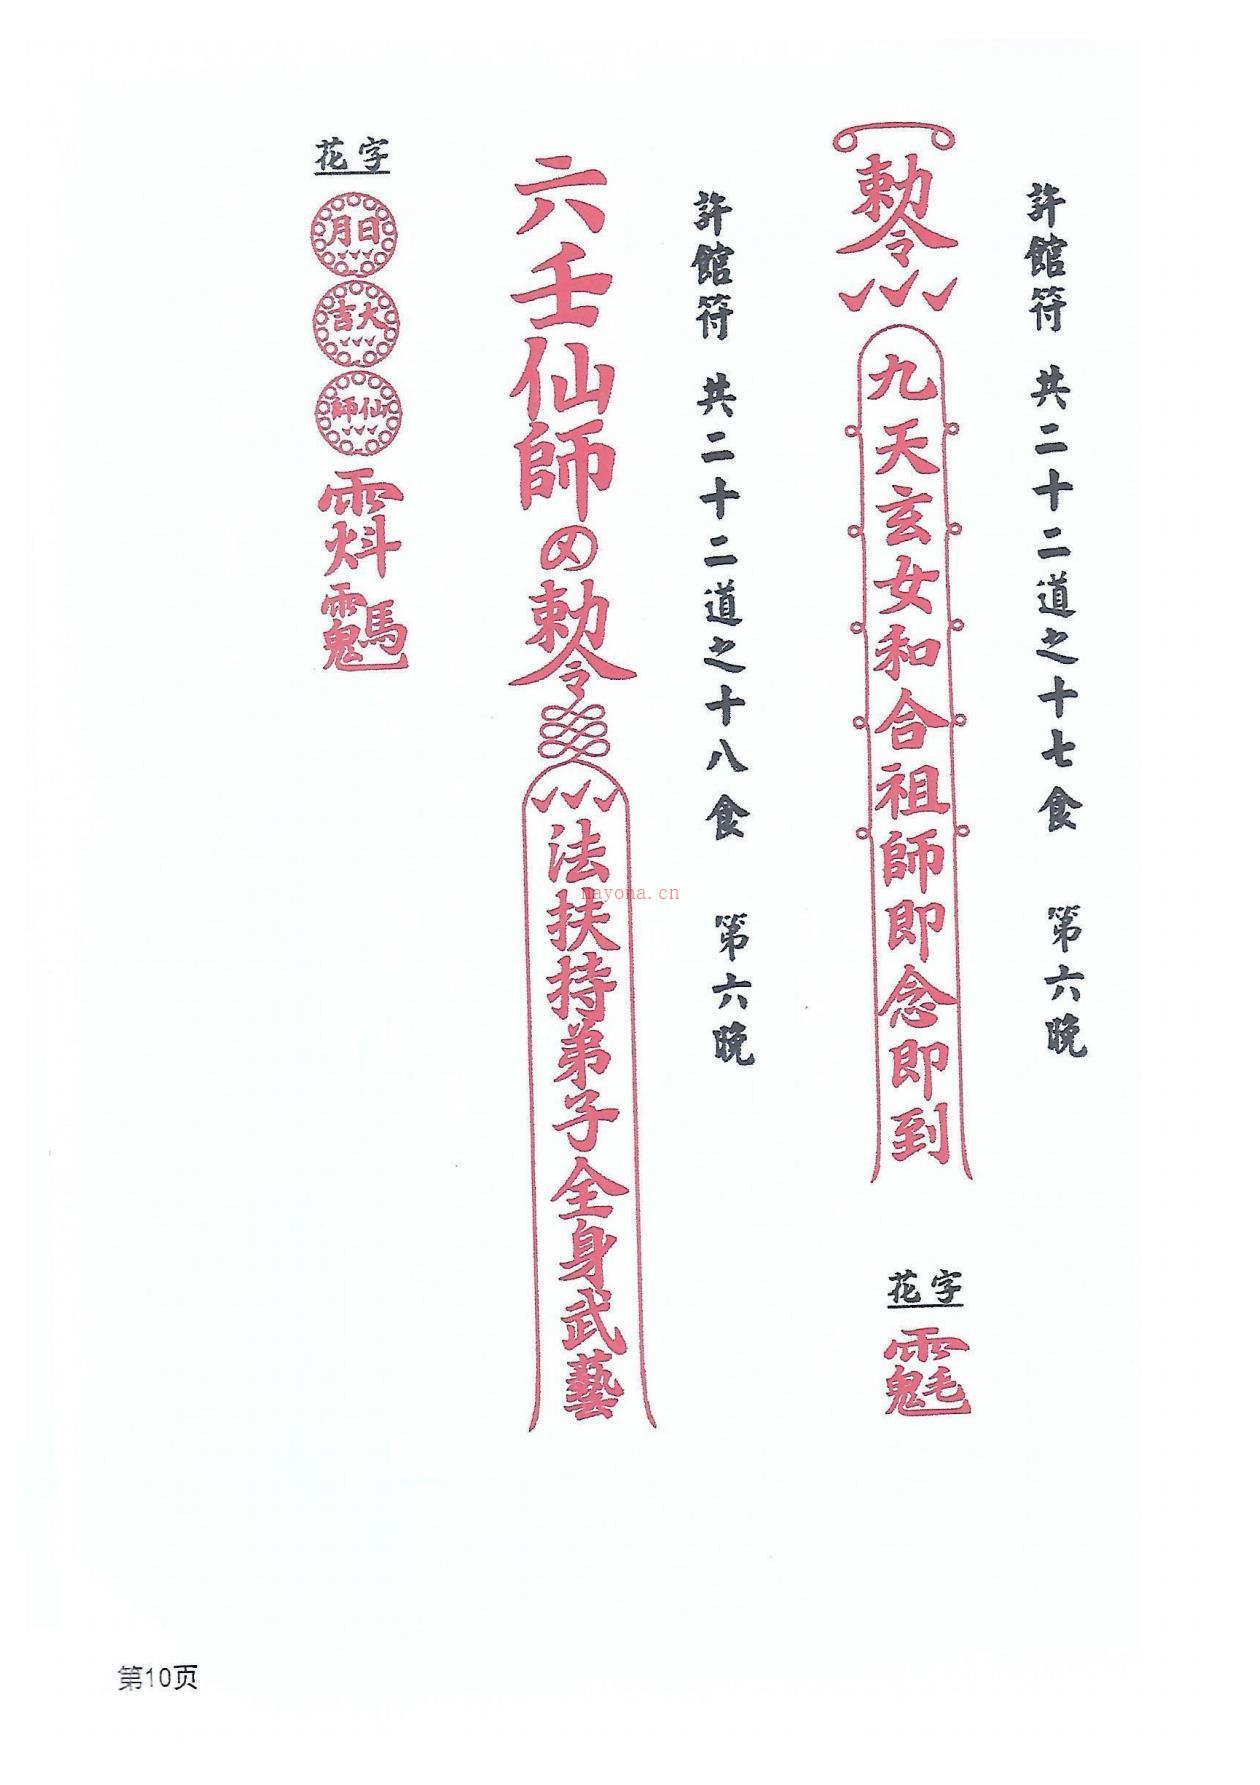 許館符 共二十二道之十七食 第六晚
勅令
九天玄女和合祖師即念即到
花字
許館符 共二十二道之十八食 第六晚
六壬仙師
勅令
法扶持弟子全身武藝
花字
日月
大吉
仙師
nayona.cn
第10页